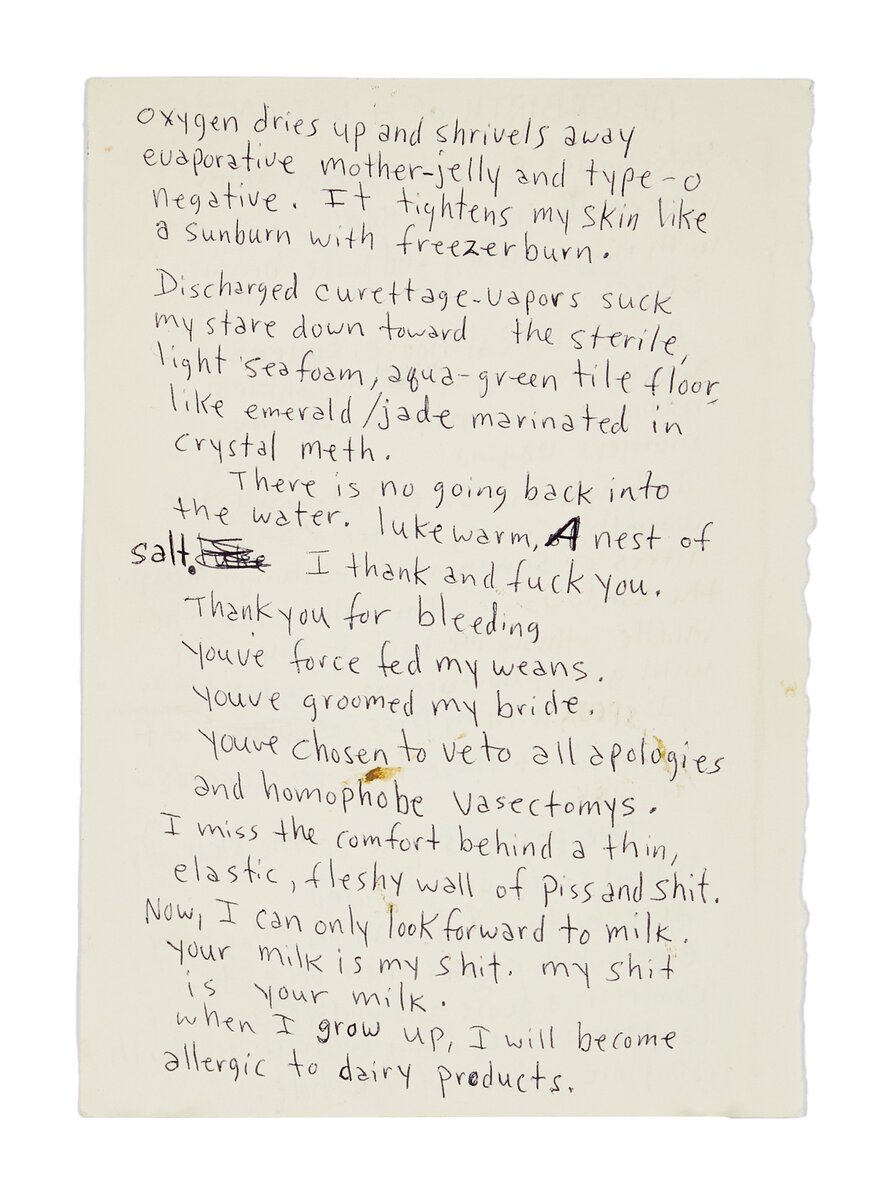 oxygen dries up and shrivels away
evaporative mother-jelly and type-o
negative. It tightens my skin like
a sunburn with freezerburn.
Discharged curettage-vapors suck
my stare down toward the sterile,
light seafoam, aqua-green tile floor,
like emerald/jade marinated in
crystal meth.
There is no going back into
the water. lukewarm, A nest of
salt. I thank and fuck you.
Thank you for bleeding
youve force fed my weans.
youve groomed my bride.
youve chosen to veto all apologies
and homophobe vasectomys.
I miss the comfort behind a thin,
elastic, fleshy wall of piss and shit.
Now, I can only look forward to milk.
your milk is my shit. my shit
is your milk.
when I grow up, I will become
allergic to dairy products.